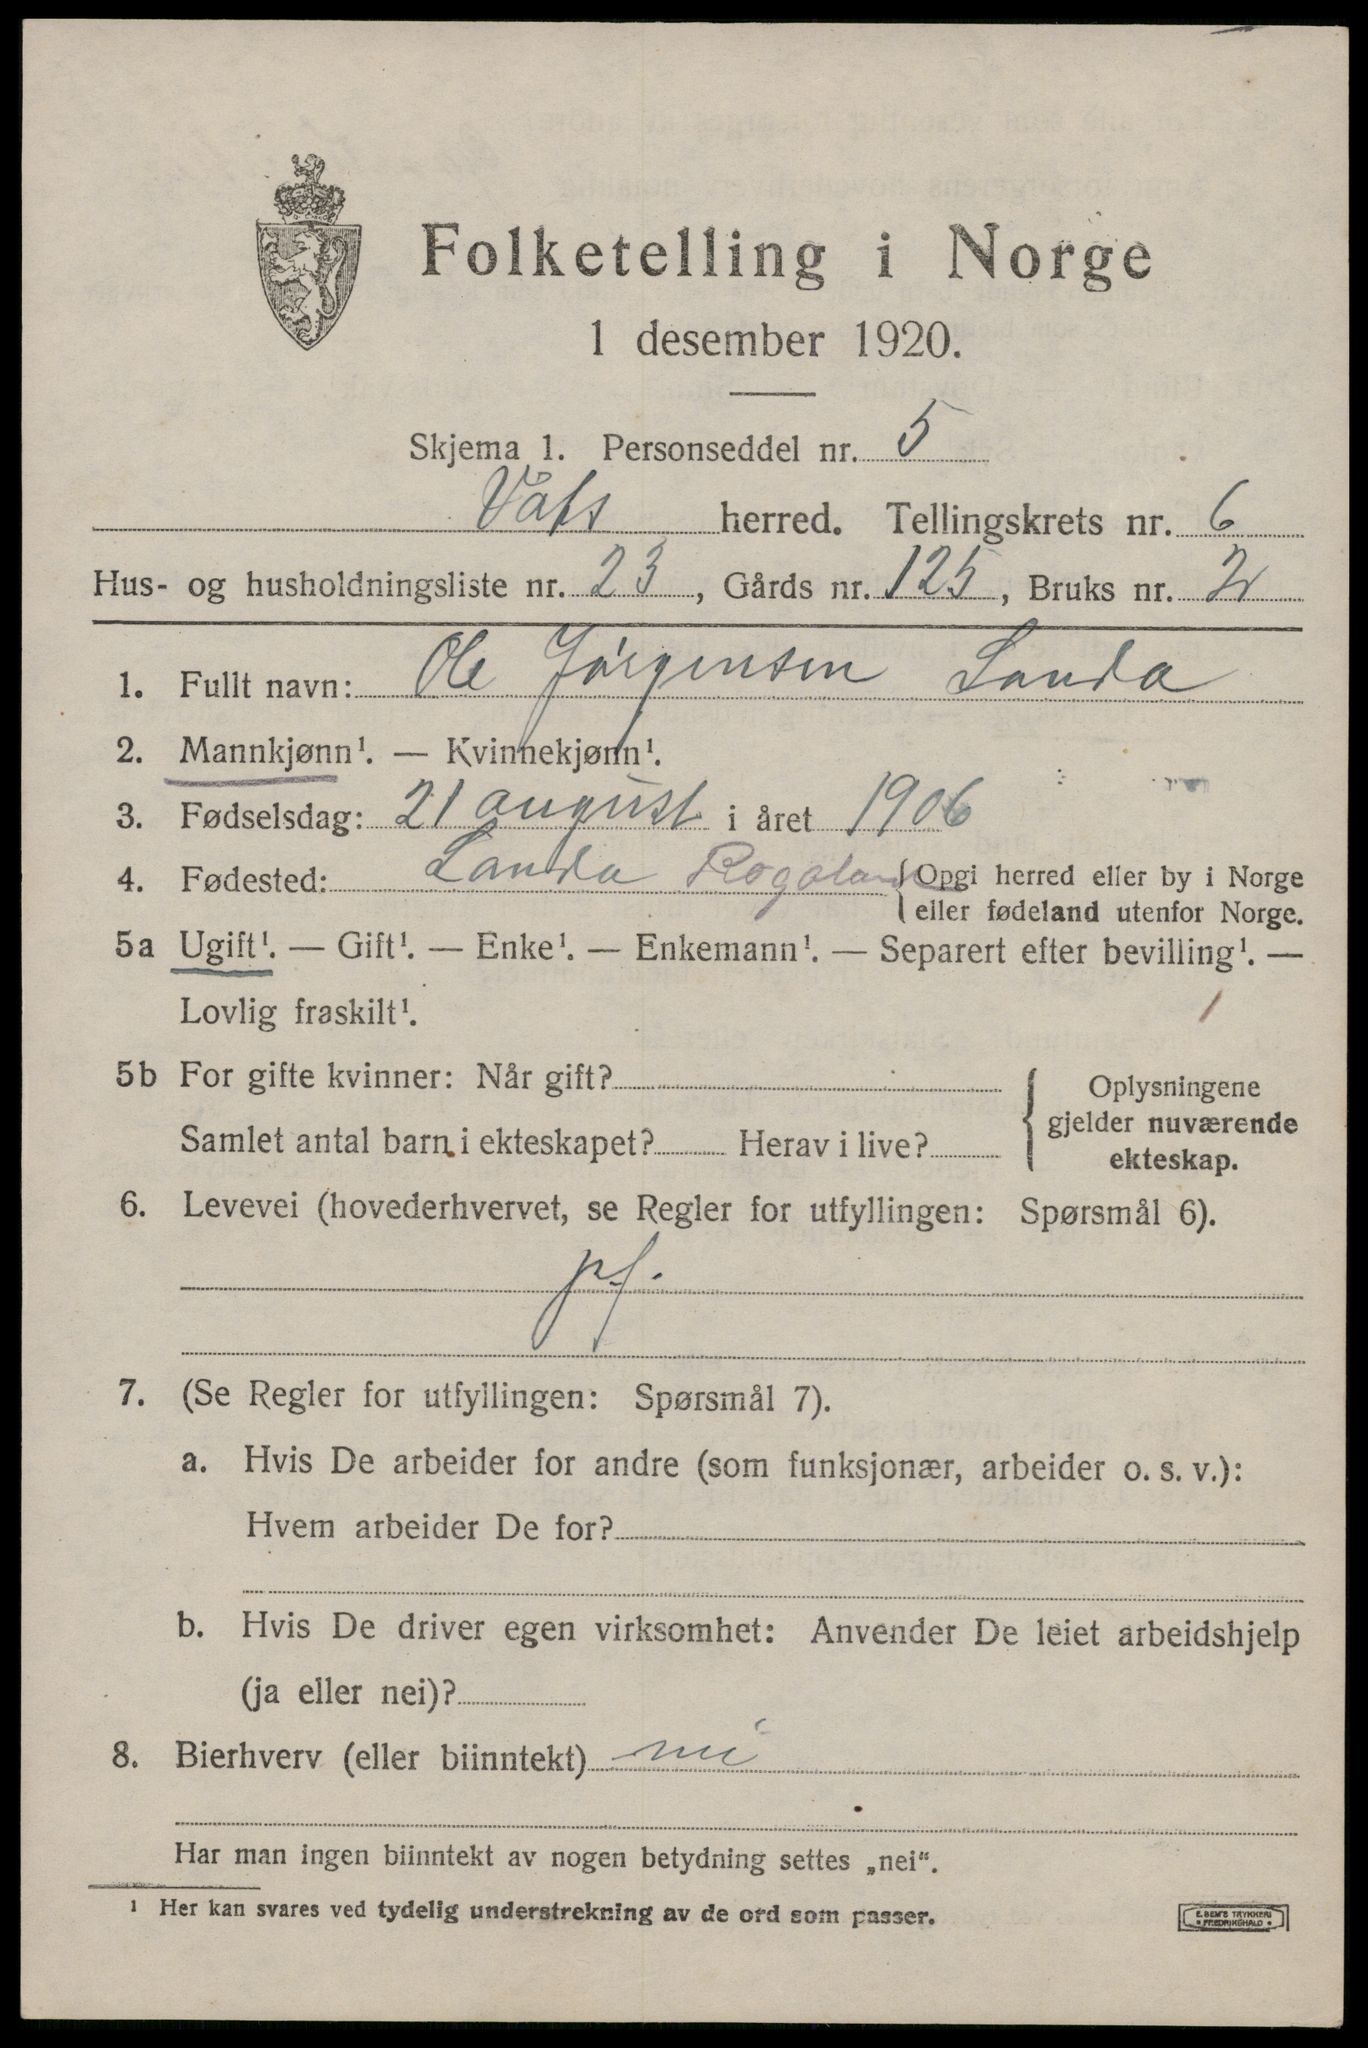 Folketelling i Norge
1 desember 1920.
Skjema 1. Personseddel nr. 5
Vats herred. Tellingskrets nr. 6
Hus- og husholdningsliste nr. 23, Gårds nr. 125, Bruks nr. 2
1. Fullt navn: Ole Jörgensen Landa
2. Mannkjønn¹. — Kvinnekjønn¹.
3. Fødselsdag: 21 august i året 1906
4. Fødested: Landa Rogaland {Opgi herred eller by i Norge
eller fødeland utenfor Norge.
5a Ugift¹. — Gift¹. — Enke¹. — Enkemann¹. — Separert efter bevilling¹. —
Lovlig fraskilt¹.
5b For gifte kvinner: Når gift?
Samlet antal barn i ekteskapet? Herav i live?
Oplysningene
gjelder nuværende
ekteskap.
6. Levevei (hovederhvervet, se Regler for utfyllingen: Spørsmål 6).
pf.
7. (Se Regler for utfyllingen: Spørsmål 7).
a. Hvis De arbeider for andre (som funksjonær, arbeider o. s. v.):
Hvem arbeider De for?
b. Hvis De driver egen virksomhet: Anvender De leiet arbeidshjelp
(ja eller nei)?
8. Bierhverv (eller biinntekt) nei
Har man ingen biinntekt av nogen betydning settes „nei“.
¹ Her kan svares ved tydelig understrekning av de ord som passer.
E. SEM'S TRYKKERI
• FREDRIKSHALD •